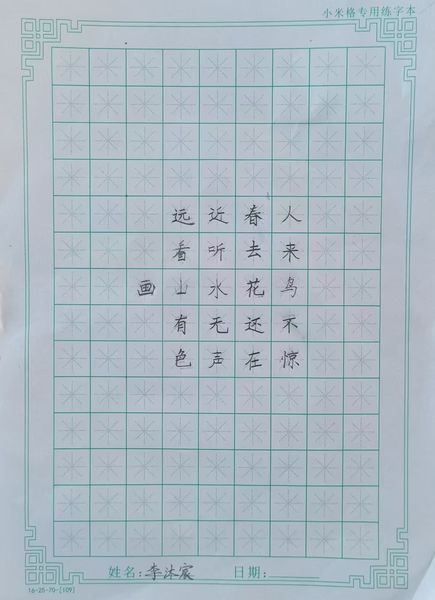 小米格专用练字本
画
远看山有色
近听水无声
春去花还在
人来鸟不惊
姓名:李沐宸
日期:
16-25-70-[109]